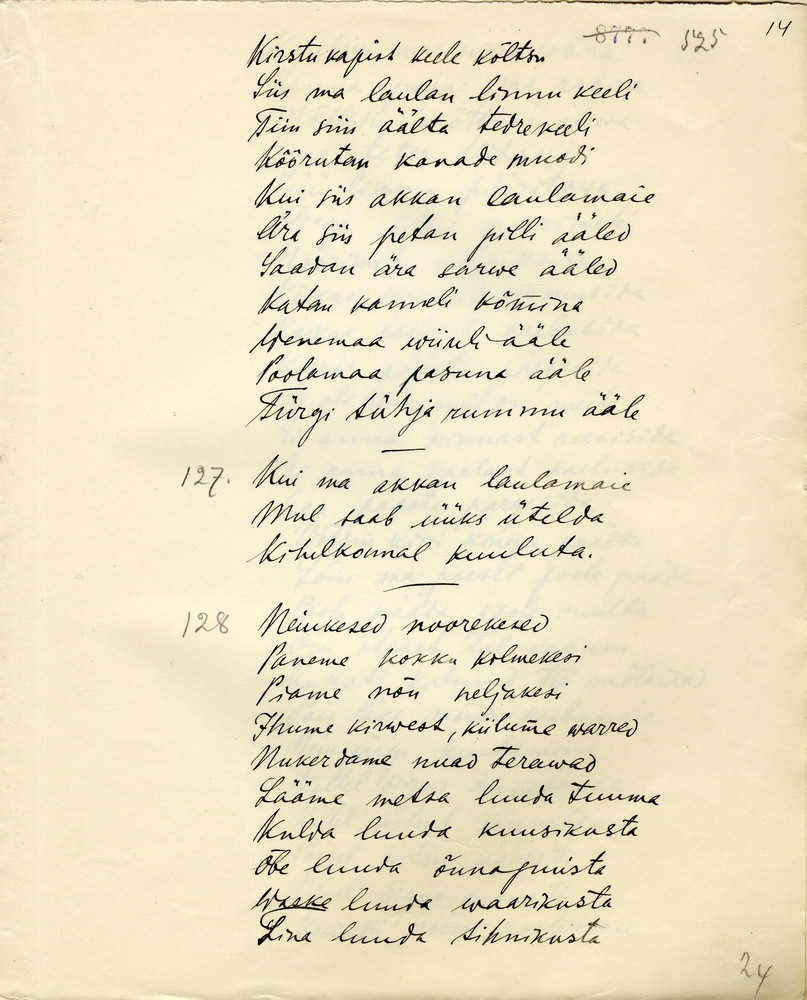 525 14
Kirstu kapist keele kõltsu
Siis ma laulan linnu keeli
Tiin siis äälta tedrekeeli
Köörutan kanade muodi
Kui siis akkan laulamaie
Ära siis petan pilli ääled
Saadan ära sarwe ääled
Katan kanneli kõmina
Wenemaa wiiuli ääle
Poolamaa pasuna ääle
Türgi tühja rummu ääle
127. Kui ma akkan laulamaie
Mul saab üüks ütelda
Kihelkonnal kuuluta.
128 Neiukesed noorekesed
Paneme kokku kolmekesi
Piame nõu neljakesi
Ihume kirwest, kiilume warred
Nukerdame nuad terawad
Lääme metsa luuda tuuma
Kulda luuda kuusikusta
Õbe luuda õunapuista
Waske luuda waarikusta
Lina luuda tihnikusta
24